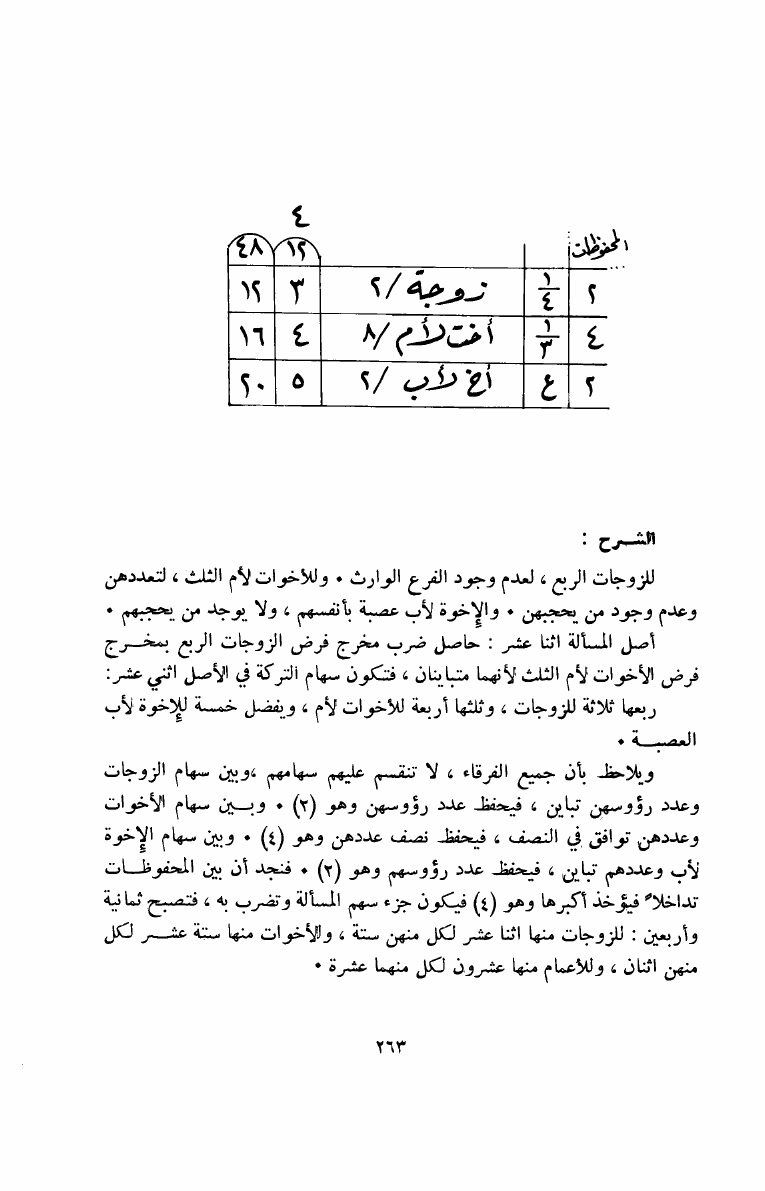 ٤
٤٨ ١٢ المحفوظات
١٢ ٣ زوجة/٢ ١/٤ ٢
١٦ ٤ أخت لأم/٨ ١/٣ ٤
٢٠ ٥ أخ لأب/٢ ع ٢
الشرح :
للزوجات الربع ، لعدم وجود الفرع الوارث • وللأخوات لأم الثلث ، لتعددهن
وعدم وجود من يحجبهن • والإخوة لأب عصبة بأنفسهم ، ولا يوجد من يحجبهم •
أصل المسألة اثنا عشر : حاصل ضرب مخرج فرض الزوجات الربع بمخرج
فرض الأخوات لأم الثلث لأنهما متباينان ، فتكون سهام التركة في الأصل اثني عشر:
ربعها ثلاثة للزوجات ، وثلثها أربعة للأخوات لأم ، ويفضل خمسة للإخوة لأب
العصبة •
ويلاحظ بأن جميع الفرقاء ، لا تنقسم عليهم سهامهم ،وبين سهام الزوجات
وعدد رؤوسهن تباين ، فيحفظ عدد رؤوسهن وهو (٢) • وبين سهام الأخوات
وعددهن توافق في النصف ، فيحفظ نصف عددهن وهو (٤) • وبين سهام الإخوة
لأب وعددهم تباين ، فيحفظ عدد رؤوسهم وهو (٢) • فنجد أن بين المحفوظات
تداخلاً فيؤخذ أكبرها وهو (٤) فيكون جزء سهم المسألة وتضرب به ، فتصبح ثمانية
وأربعين : للزوجات منها اثنا عشر لكل منهن ستة ، والأخوات منها ستة عشر لكل
منهن اثنان ، وللأعمام منها عشرون لكل منهما عشرة •
٢٦٣